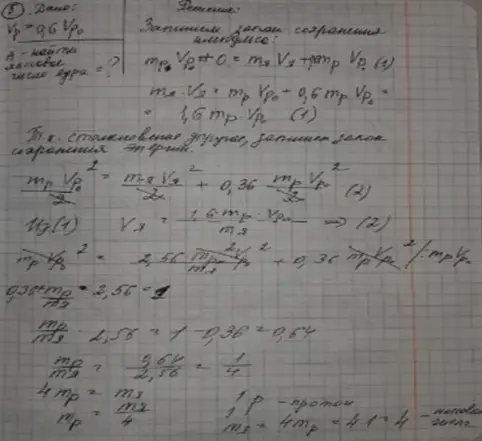 5 Дано:
Решение:
Vp = 0,6 Vp₀
A - найти
число ядра = ?
Запишем закон сохранения
импульса:
mp Vp₀ + 0 = mя Vя + mp Vp (1)
mя · Vя = mp Vp₀ + 0,6 mp Vp₀ =
= 1,6 mp · Vp₀ (1)
Т.к. столкновение упругое, запишем закон
сохранения энергии:
mp Vp₀²/2 = mя Vя²/2 + 0,36 mp Vp₀²/2 (2)
Из (1) Vя = 1,6 mp · Vp₀/mя ⇒ (2)
mp Vp₀² = 2,56 mp² Vp₀²/mя + 0,36 mp Vp₀² / : mp Vp₀
0,36 + mp/mя · 2,56 = 1
mp/mя · 2,56 = 1 - 0,36 = 0,64
mp/mя = 0,64/2,56 = 1/4
4 mp = mя
mp = mя/4
1 p - протон
1
mя = 4 mp = 4·1 = 4 - массовое
число